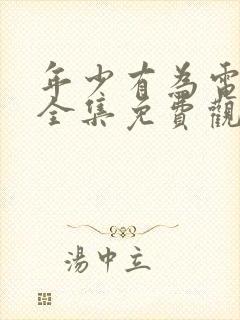 年少有為電
全集免費觀
湯中立